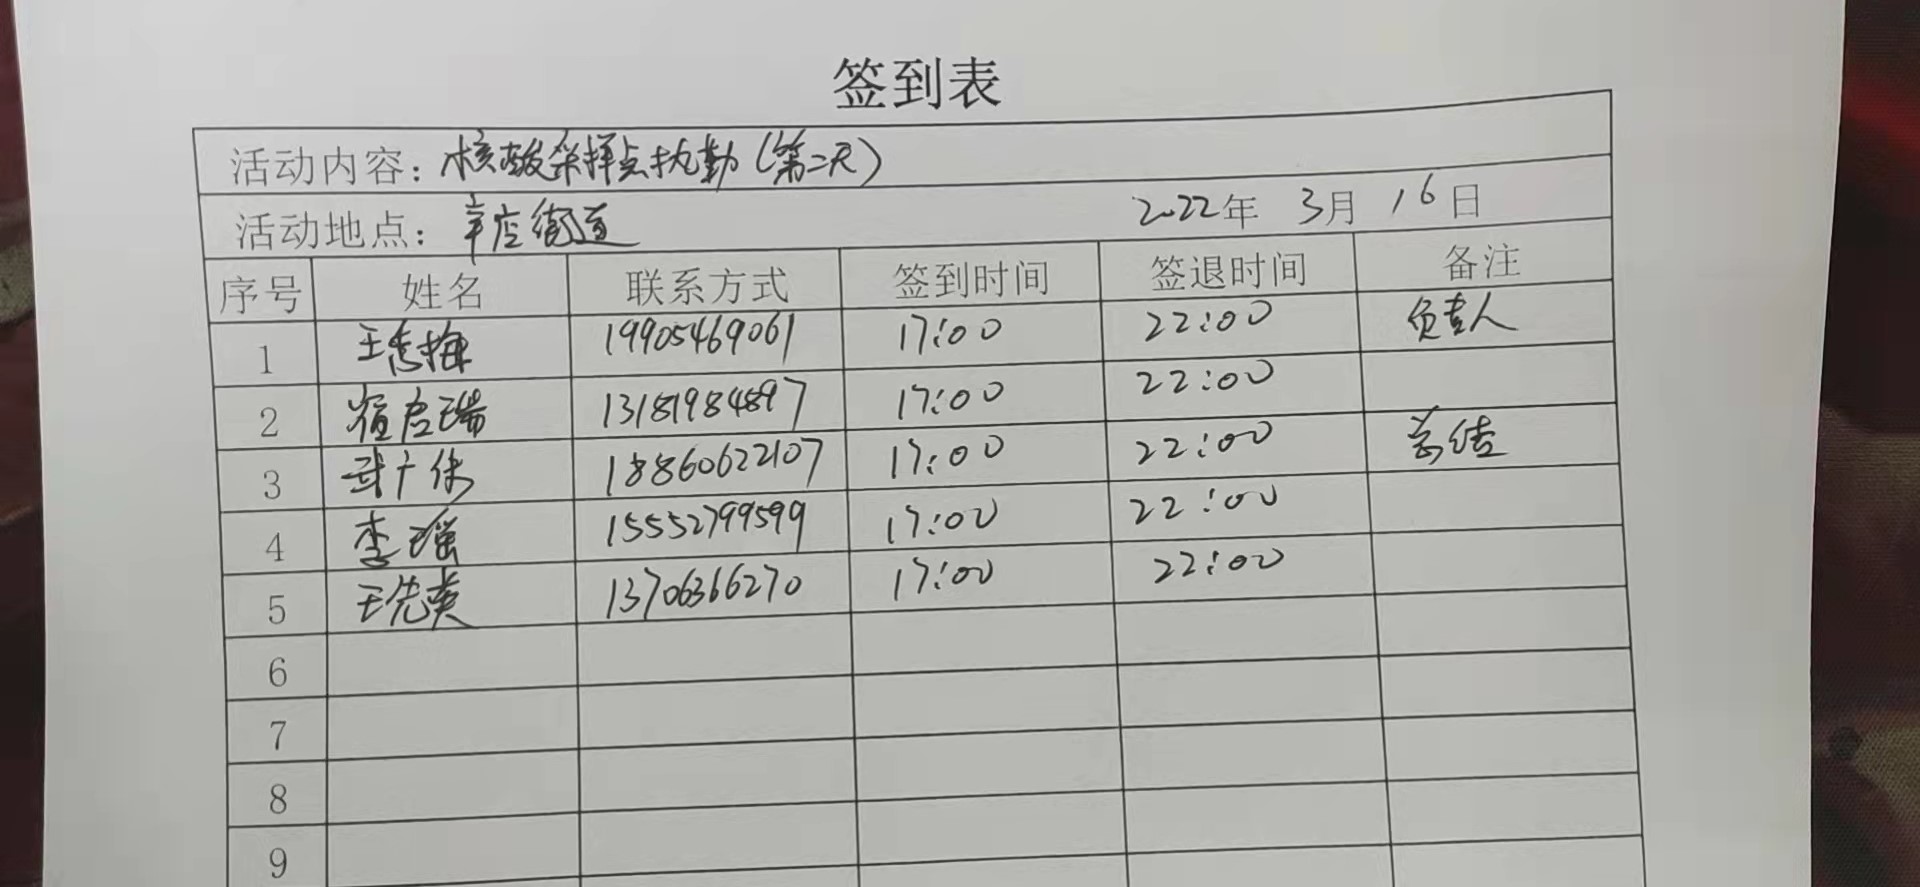 签到表
活动内容：核酸采样点执勤（第二天）
活动地点：辛店街道 2022年 3月 16日
序号 姓名 联系方式 签到时间 签退时间 备注
1 王秀梅 19905469061 17:00 22:00 负责人
2 崔启瑞 13181984897 17:00 22:00
3 武广伟 18860622107 17:00 22:00 总结
4 李瑶 15552799599 17:00 22:00
5 王先英 13706366270 17:00 22:00
6
7
8
9